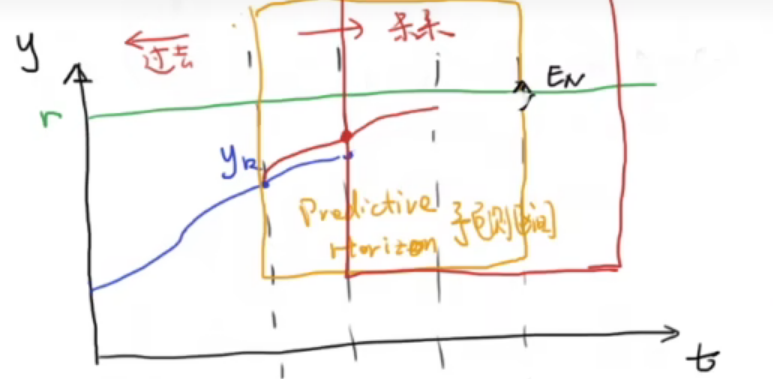 y
过去
未来
r
E_N
y_k
Predictive
Horizon
预测区间
t